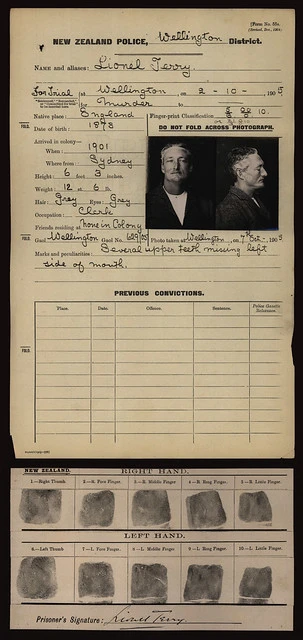 [Form No. 55a.
NEW ZEALAND POLICE, Wellington District.
Name and aliases: Lionel Terry.
For Trial at Wellington on 2 - 10 - 1905
for Murder
Native place: England Finger-print Classification
Date of birth: 1873 DO NOT FOLD ACROSS PHOTOGRAPH.
Arrived in colony—
When: 1901
Where from Sydney
Height: 6 feet 3 inches.
Weight: 12 st. 6 lb.
Hair: Grey Eyes: Grey
Occupation: Clerk
Friends residing at none in Colony
Gaol Wellington Gaol No. 629/05 Photo taken at Wellington, on 7th Oct -, 1905
Marks and peculiarities: Several upper teeth missing left
side of mouth.
FOLD.
FOLD.
FOLD.
PREVIOUS CONVICTIONS.
Place. Date. Offence. Sentence. Police Gazette Reference.
NEW ZEALAND. RIGHT HAND.
1.—Right Thumb 2.—R. Fore Finger. 3.—R. Middle Finger 4.—R. Ring Finger. 5.—R. Little Finger.
LEFT HAND.
6.—Left Thumb 7.—L. Fore Finger. 8.—L. Middle Finger 9.—L. Ring Finger 10.—L. Little Finger.
Prisoner's Signature: Lionel Terry.